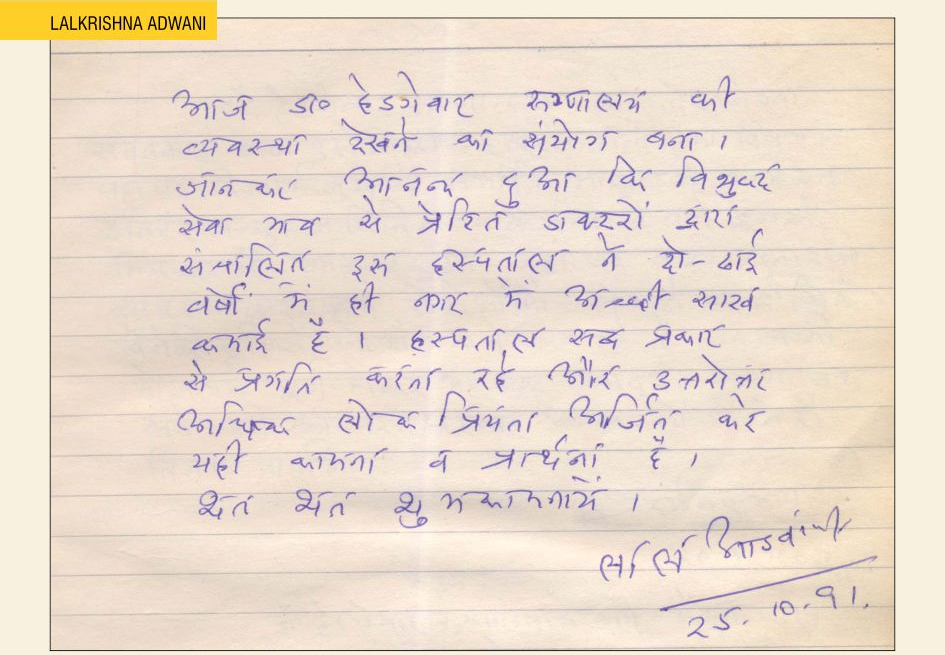 LALKRISHNA ADWANI
आज डा० हेडगेवार रुग्णालय की
व्यवस्था देखने का संयोग बना ।
जानकर आनन्द हुआ कि विशुद्ध
सेवा भाव से प्रेरित डाक्टरों द्वारा
संचालित इस हस्पताल ने दो-ढाई
वर्षों में ही नगर में अच्छी साख
कमाई है । हस्पताल सब प्रकार
से प्रगति करता रहे और उत्तरोत्तर
अधिक लोकप्रियता अर्जित करे
यही कामना व प्रार्थना है ।
शत शत शुभकामनायें ।
लाल आडवाणी
25.10.91.